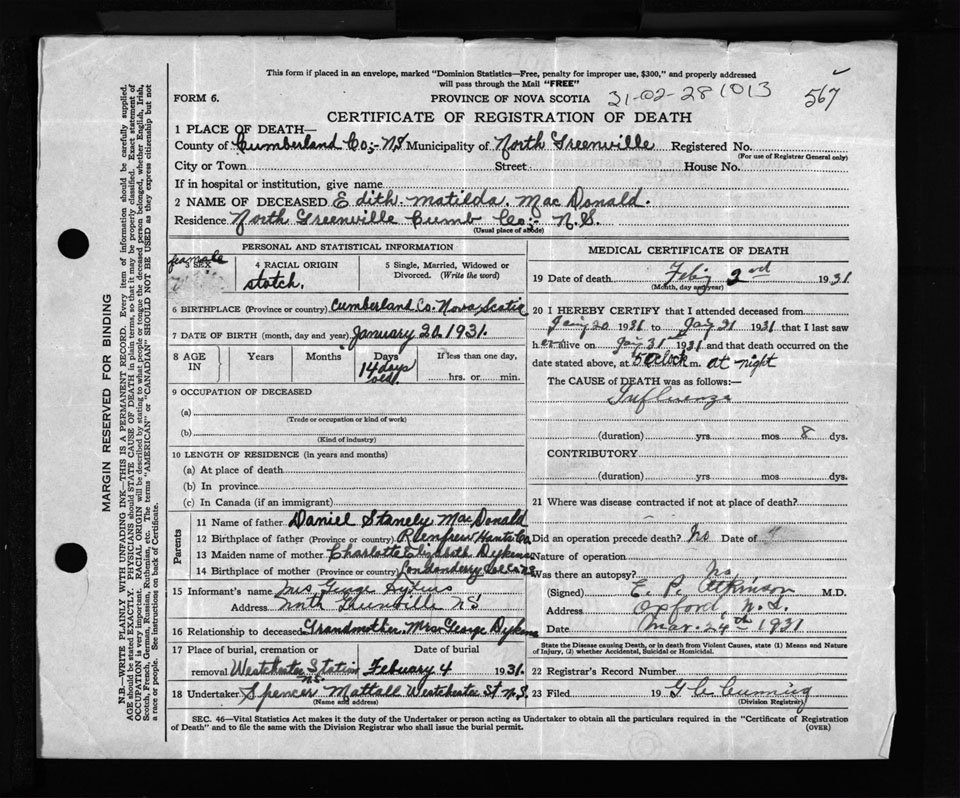 This form if placed in an envelope, marked "Dominion Statistics—Free, penalty for improper use, $300," and properly addressed
will pass through the Mail "FREE"
FORM 6.
PROVINCE OF NOVA SCOTIA
31-02-28 1013
567
CERTIFICATE OF REGISTRATION OF DEATH
1 PLACE OF DEATH—
County of Cumberland Co;- NS Municipality of North Greenville Registered No.
(For use of Registrar General only)
City or Town Street House No.
If in hospital or institution, give name
2 NAME OF DECEASED Edith. Matilda. Mac Donald.
Residence North Greenville Cumb Co;- N.S.
(Usual place of abode)
PERSONAL AND STATISTICAL INFORMATION
3 SEX
female
4 RACIAL ORIGIN
stotch.
5 Single, Married, Widowed or
Divorced. (Write the word)
6 BIRTHPLACE (Province or country) Cumberland. Co. Nova Scotia
7 DATE OF BIRTH (month, day and year) January 20. 1931.
8 AGE IN
Years
Months
Days
14 days
old.
If less than one day,
hrs. or min.
9 OCCUPATION OF DECEASED
(a)
(Trade or occupation or kind of work)
(b)
(Kind of industry)
10 LENGTH OF RESIDENCE (in years and months)
(a) At place of death
(b) In province
(c) In Canada (if an immigrant)
Parents
11 Name of father Daniel Stanely Mac Donald
12 Birthplace of father (Province or country) Renfrew Hants Co
13 Maiden name of mother Charlotte Elizabeth Dykens
14 Birthplace of mother (Province or country) Londonderry Col Co N.S.
15 Informant's name Mrs George Dykens
Address North NS
16 Relationship to deceased Grandmother. Mrs George Dykens
17 Place of burial, cremation or
removal Westchester Station
NS.
Date of burial
Febuary 4 1931.
18 Undertaker Spencer Mattall Westchester St N.S.
(Name and address)
MEDICAL CERTIFICATE OF DEATH
19 Date of death Feby 2nd 1931
(Month, day and year)
20 I HEREBY CERTIFY that I attended deceased from
Jany 20 1931 to Jany 31 1931 that I last saw
her alive on Jany 31st 1931 and that death occurred on the
date stated above, at 5 Oclock m. at night
The CAUSE of DEATH was as follows:—
Influenza
(duration) yrs mos 8 dys.
CONTRIBUTORY
(duration) yrs mos dys.
21 Where was disease contracted if not at place of death?
Did an operation precede death? No Date of
Nature of operation
Was there an autopsy? No
(Signed) E. P. Atkinson M.D.
Address Oxford, N.S.
Date Mar. 24th 1931
State the Disease causing Death, or in death from Violent Causes, state (1) Means and Nature
of Injury, (2) whether Accidental, Suicidal or Homicidal.
22 Registrar's Record Number
23 Filed 19 G C Cumming
(Division Registrar)
SEC. 46—Vital Statistics Act makes it the duty of the Undertaker or person acting as Undertaker to obtain all the particulars required in the "Certificate of Registration
of Death" and to file the same with the Division Registrar who shall issue the burial permit.
(OVER)
MARGIN RESERVED FOR BINDING
N.B.—WRITE PLAINLY WITH UNFADING INK—THIS IS A PERMANENT RECORD. Every item of information should be carefully supplied.
AGE should be stated EXACTLY. PHYSICIANS should STATE CAUSE OF DEATH in plain terms, so that it may be properly classified. Exact statement of
OCCUPATION is very important. RACIAL ORIGIN will be described by stating to what people or tongue the deceased person belonged, whether English, Irish,
Scotch, French, German, Russian, Ruthenian, etc. The terms "AMERICAN" or "CANADIAN" SHOULD NOT BE USED as they express citizenship but not
a race or people. See instructions on back of Certificate.